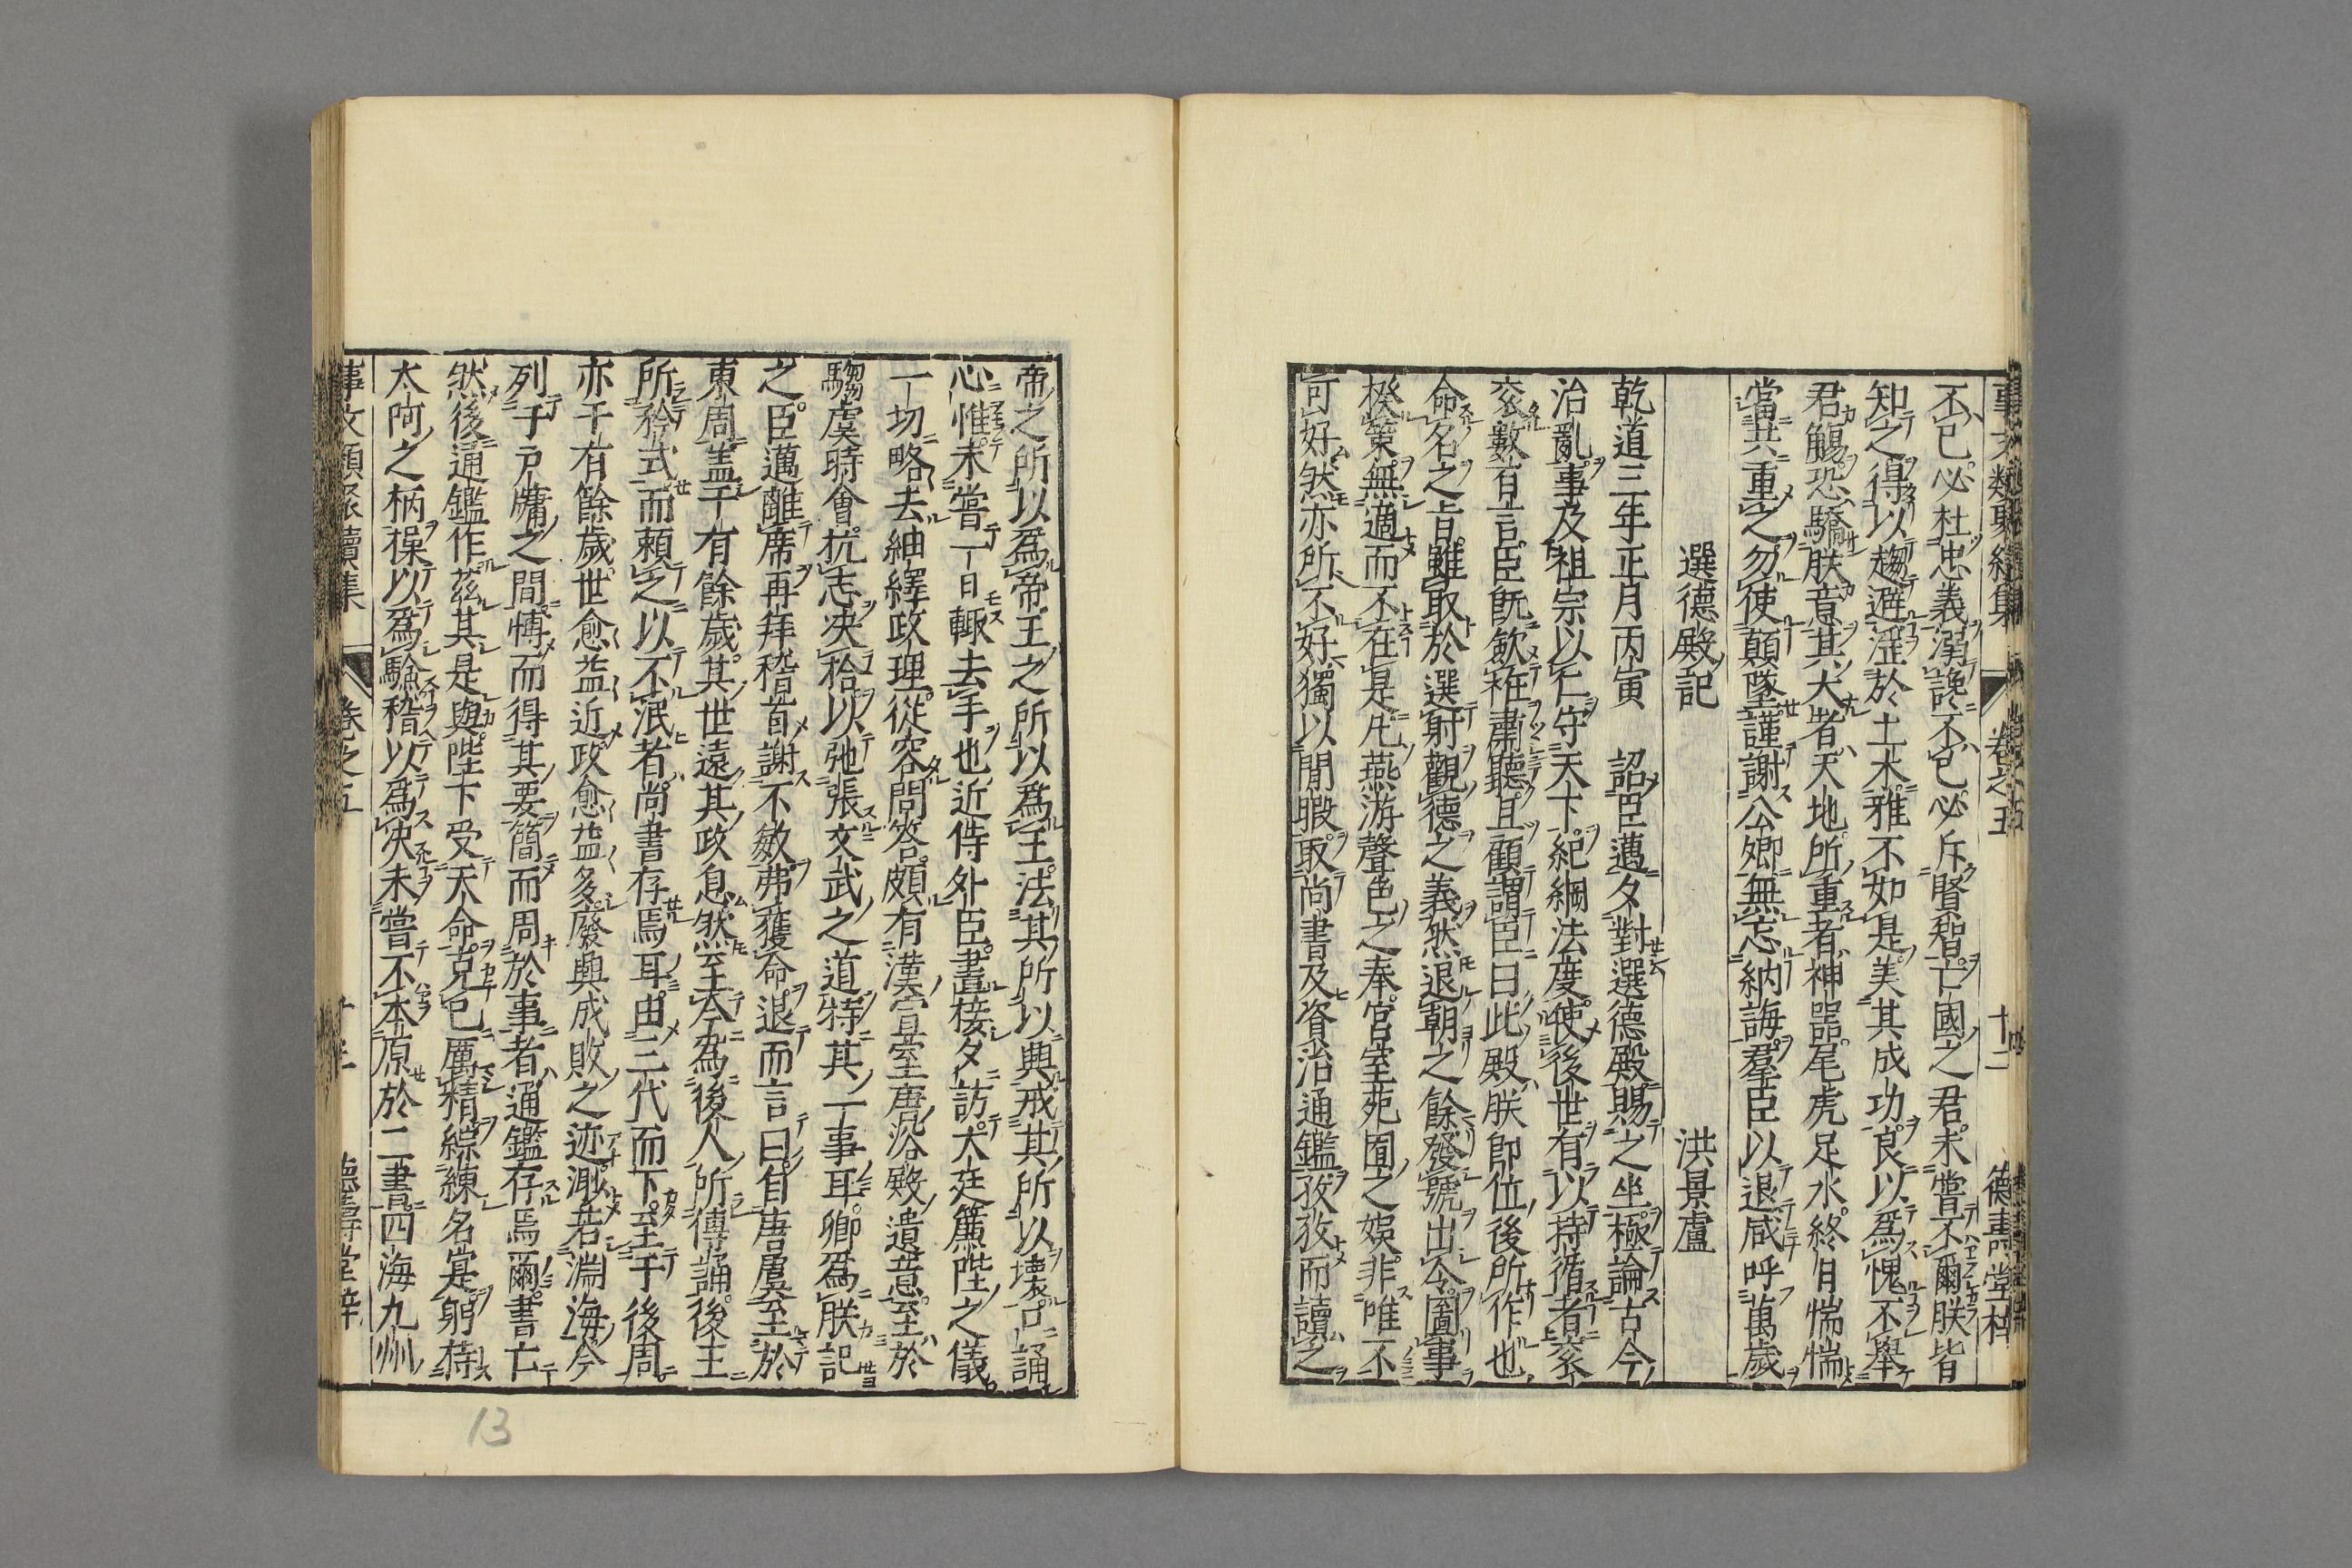 事文類聚續集 卷之五 十二 德壽堂梓
不已必杜忠義溺讒不已必斥賢智亡國之君未嘗不爾朕皆
知之得以趨避淫於土木雅不如是美其成功良以爲愧不舉
君觴恐驕朕意其大者天地所重者神噐尾虎足水終日惴惴
當共重之勿使顛墜謹謝公卿無忘納誨羣臣以退咸呼萬歲
選德殿記 洪景盧
乾道三年正月丙寅 詔臣邁夕對選德殿賜之坐極論古今
治亂事及祖宗以仁守天下紀綱法度使後世有以持循者奈
交數百言臣旣歛袵肅聽且顧謂臣曰此殿朕卽位後所作也
命名之旨雖取於選射觀德之義然退朝之餘發號出令圖事
揆策無適而不在是凢燕游聲色之奉官室苑囿之娯非唯不
可好然亦所不好獨以閒暇取尚書及資治通鑑孜孜而讀之
帝之所以爲帝王之所以爲王法其所以興戒其所以壞口誦
心惟未嘗一日輙去手也近侍外臣晝接夕訪大廷簾陛之儀
一切略去紬繹政理從容問答頗有漢宣室唐浴殿遺意至於
騶虞時會抗志决拾以弛張文武之道特其一事耳卿爲朕記
之臣邁離席再拜稽首謝不敏弗獲命退而言曰自唐虞至於
東周盖千有餘歲其世遠其政息然至今爲後人所傳誦後王
所矜式而頼之以不泯者尚書存焉耳由三代而下至于後周
亦千有餘歲世愈益近政愈益多廢興成敗之迹渺若淵海今
列于户牖之間博而得其要簡而周於事者通鑑存焉爾書亡
然後通鑑作茲其是與陛下受天命克已厲精綜練名寔躬持
太阿之柄操以爲驗稽以爲决未嘗不本原於二書四海九州
事文類聚續集 卷之五 十 德壽堂梓
13